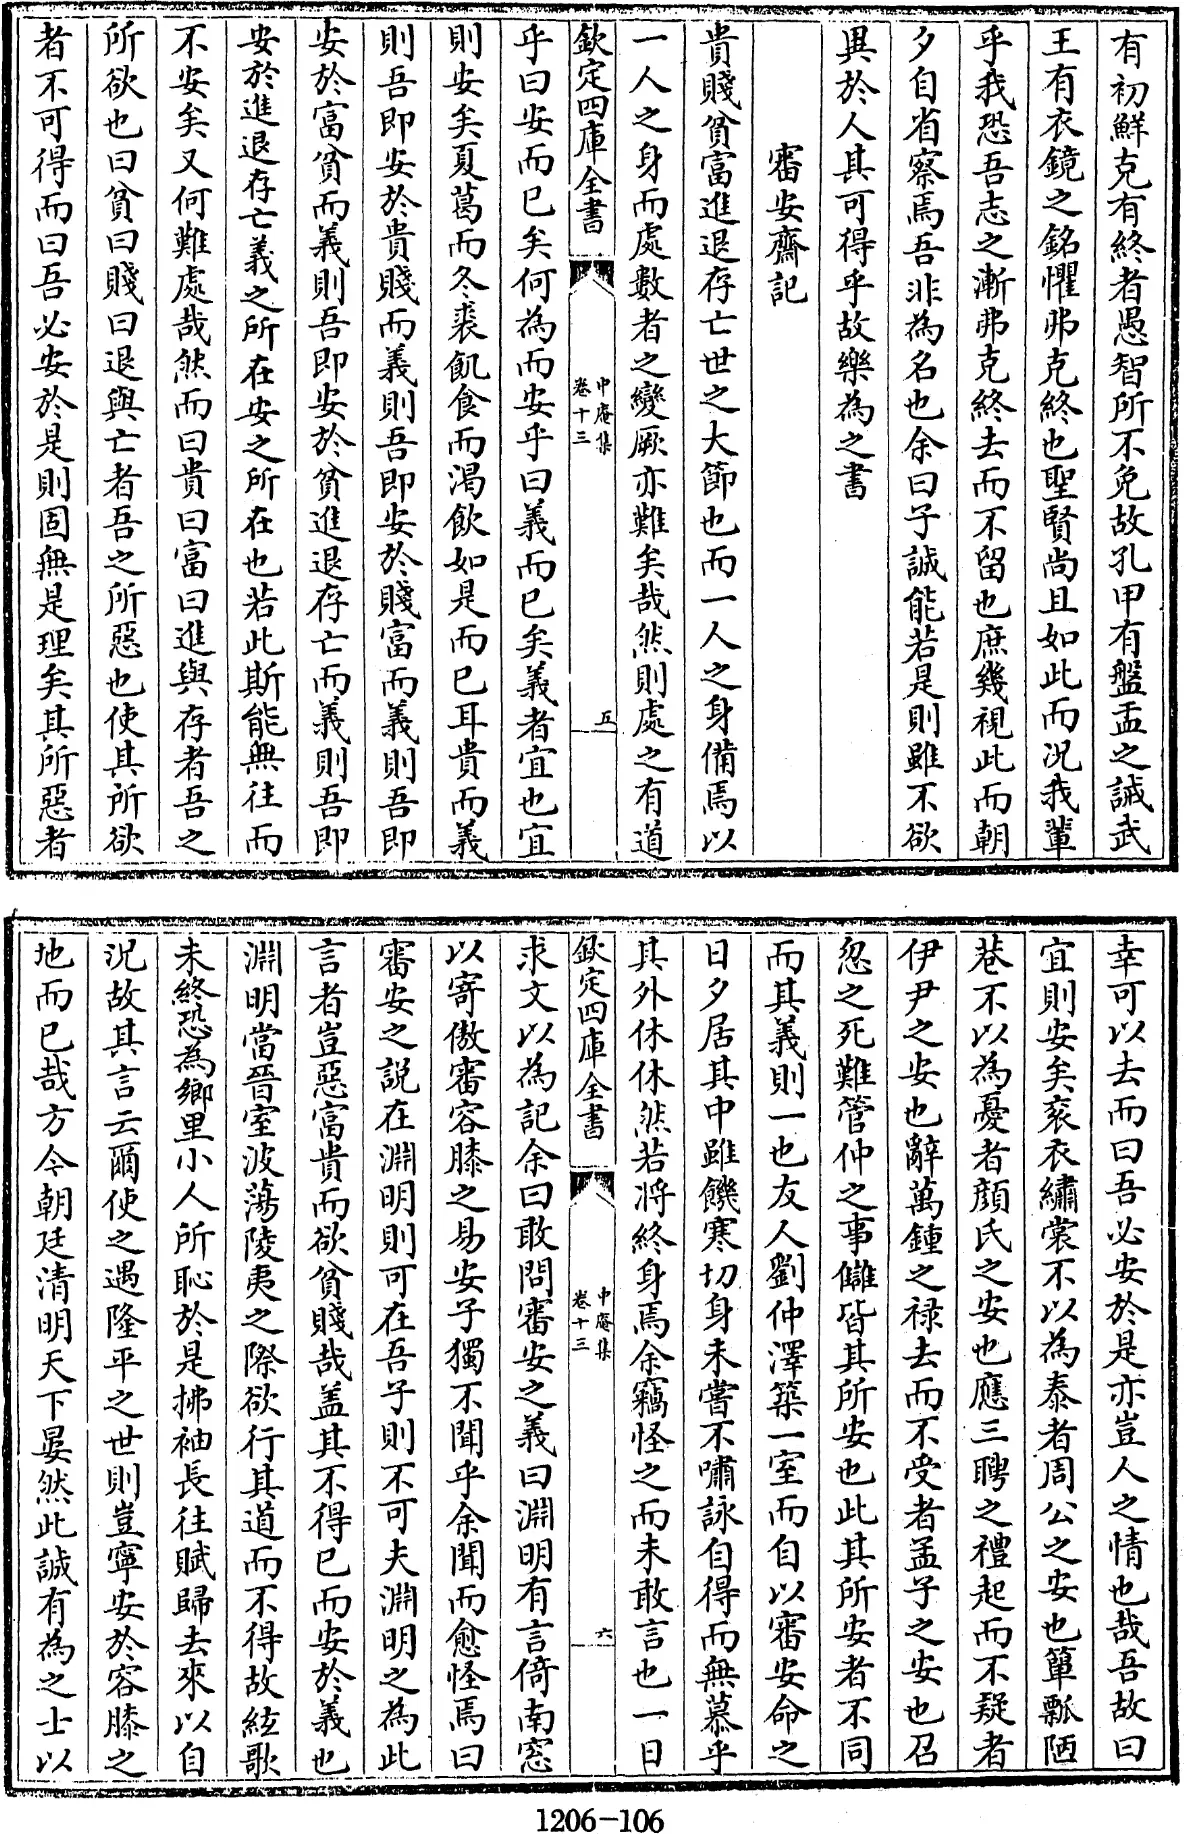 有初鮮克有終者愚智所不免故孔甲有盤盂之誡武
王有衣鏡之銘懼弗克終也聖賢尚且如此而況我輩
乎我恐吾志之漸弗克終去而不留也庶幾視此而朝
夕自省察焉吾非為名也余曰子誠能若是則雖不欲
異於人其可得乎故樂為之書
審安齋記
貴賤貧富進退存亡世之大節也而一人之身備焉以
一人之身而處數者之變厥亦難矣哉然則處之有道
欽定四庫全書
中庵集
卷十三
五
乎曰安而已矣何為而安乎曰義而已矣義者宜也宜
則安矣夏葛而冬裘飢食而渴飲如是而已耳貴而義
則吾即安於貴賤而義則吾即安於賤富而義則吾即
安於富貧而義則吾即安於貧進退存亡而義則吾即
安於進退存亡義之所在安之所在也若此斯能無往而
不安矣又何難處哉然而曰貴曰富曰進與存者吾之
所欲也曰貧曰賤曰退與亡者吾之所惡也使其所欲
者不可得而曰吾必安於是則固無是理矣其所惡者
幸可以去而曰吾必安於是亦豈人之情也哉吾故曰
宜則安矣袞衣繡裳不以為泰者周公之安也簞瓢陋
巷不以為憂者顔氏之安也應三聘之禮起而不疑者
伊尹之安也辭萬鍾之禄去而不受者孟子之安也召
忽之死難管仲之事讎皆其所安也此其所安者不同
而其義則一也友人劉仲澤築一室而自以審安命之
日夕居其中雖饑寒切身未嘗不嘯詠自得而無慕乎
其外休休然若将終身焉余竊怪之而未敢言也一日
欽定四庫全書
中庵集
卷十三
六
求文以為記余曰敢問審安之義曰淵明有言倚南窓
以寄傲審容膝之易安子獨不聞乎余聞而愈怪焉曰
審安之説在淵明則可在吾子則不可夫淵明之為此
言者豈惡富貴而欲貧賤哉盖其不得已而安於義也
淵明當晉室波蕩陵夷之際欲行其道而不得故絃歌
未終恐為鄉里小人所恥於是拂袖長往賦歸去來以自
況故其言云爾使之遇隆平之世則豈寧安於容膝之
地而已哉方今朝廷清明天下晏然此誠有為之士以
1206-106